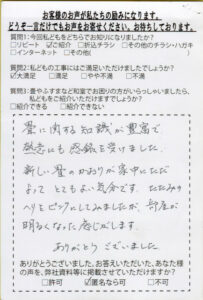 お客様のお声が私たちの励みになります。
どうぞ一言だけでもお声をお寄せください。お待ちしております。
質問1:今回私どもをどちらでお知りになりましたか?
□リピート ☑ご紹介 □折込チラシ □その他のチラシ・ハガキ
□インターネット □その他(
質問2:私どもの工事にはご満足いただけましたでしょうか?
☑大満足 □満足 □やや不満 □不満
質問3:畳やふすまなど和室でお困りの方がいらっしゃいましたら、
私共をご紹介いただけますでしょうか?
□紹介できる □紹介できない
畳に関する知識が豊富で
熱意にも感銘を受けました。
新しい畳のかおりが家中にただ
よって とてもよい気分です。たたみの
ヘリもピンクにしてみましたが、部屋が
明るくなった感じがします。
ありがとうございました
ありがとうございました。お答えいただいた、あなた様
の声を、弊社資料等に掲載させていただけますか?
□許可 ☑匿名なら可 □不可